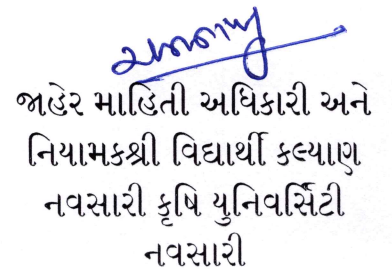 જાહેર માહિતી અધિકારી અને
નિયામકશ્રી વિદ્યાર્થી કલ્યાણ
નવસારી કૃષિ યુનિવર્સિટી
નવસારી